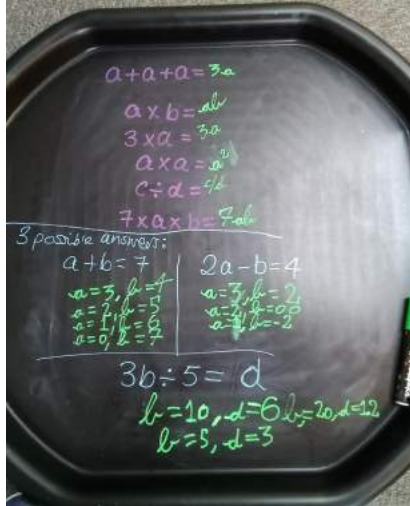 a+a+a=3a
a×b=ab
3×a=3a
a×a=a²
c÷d=c/d
7×a×b=7ab
3 possible answers:
a+b=7
a=3, b=4
a=2, b=5
a=1, b=6
a=0, b=7
2a-b=4
a=3, b=2
a=2, b=0
b=-2
3b÷5=d
b=10, d=6 b=20, d=12
b=5, d=3